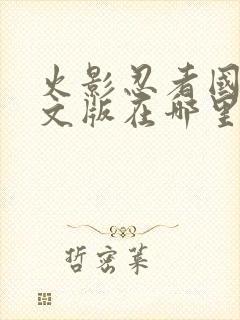 火影忍者国
文版在哪里
哲密莱